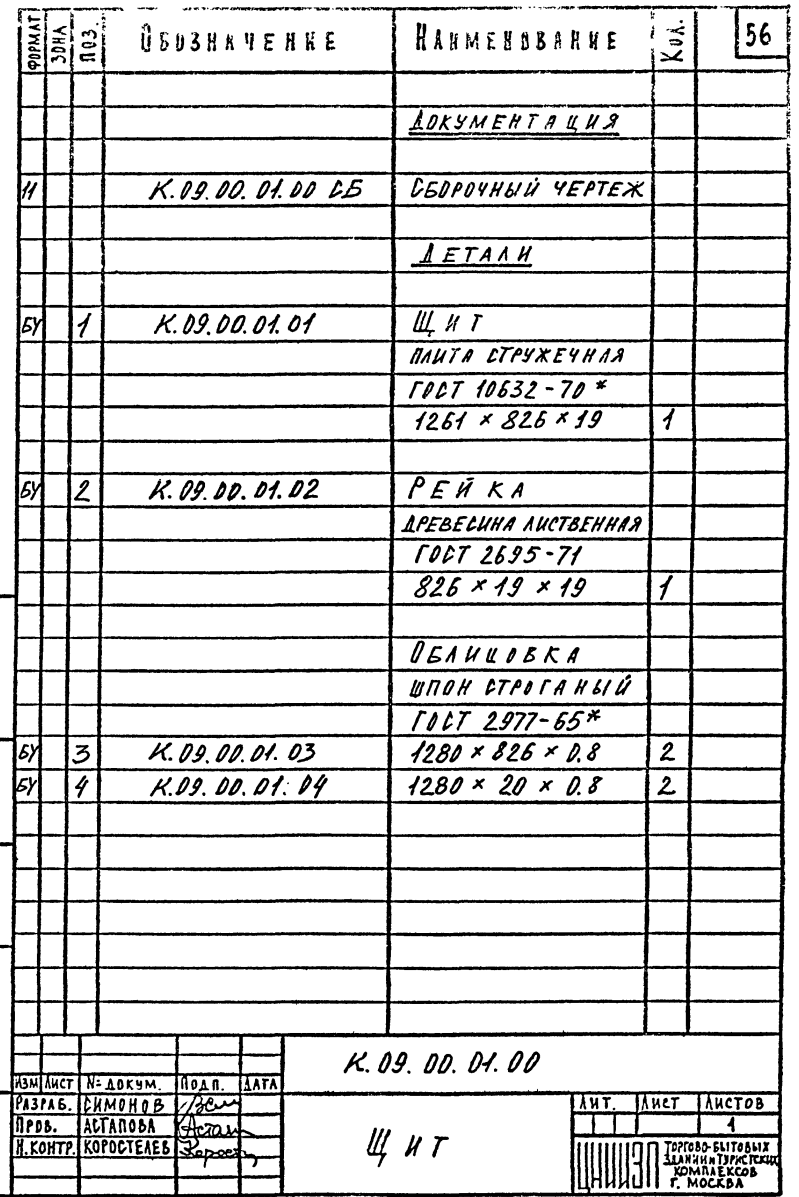 ФОРМАТ ЗОНА ПОЗ. ОБОЗНАЧЕНИЕ НАИМЕНОВАНИЕ КОЛ. 56
ДОКУМЕНТАЦИЯ
11 К.09.00.01.00 СБ СБОРОЧНЫЙ ЧЕРТЕЖ
ДЕТАЛИ
БУ 1 К.09.00.01.01 ЩИТ
ПЛИТА СТРУЖЕЧНАЯ
ГОСТ 10632-70*
1261 × 826 × 19 1
БУ 2 К.09.00.01.02 РЕЙКА
ДРЕВЕСИНА ЛИСТВЕННАЯ
ГОСТ 2695-71
826 × 19 × 19 1
ОБЛИЦОВКА
ШПОН СТРОГАНЫЙ
ГОСТ 2977-65*
БУ 3 К.09.00.01.03 1280 × 826 × 0.8 2
БУ 4 К.09.00.01.04 1280 × 20 × 0.8 2
К.09.00.01.00
ИЗМ ЛИСТ № ДОКУМ. ПОДП. ДАТА
РАЗРАБ. СИМОНОВ
ПРОВ. АСТАПОВА
Н.КОНТР. КОРОСТЕЛЕВ
ЩИТ
ЛИТ. ЛИСТ ЛИСТОВ
1
ЦНИИЭП ТОРГОВО-БЫТОВЫХ
ЗДАНИЙ И ТУРИСТСКИХ
КОМПЛЕКСОВ
Г. МОСКВА